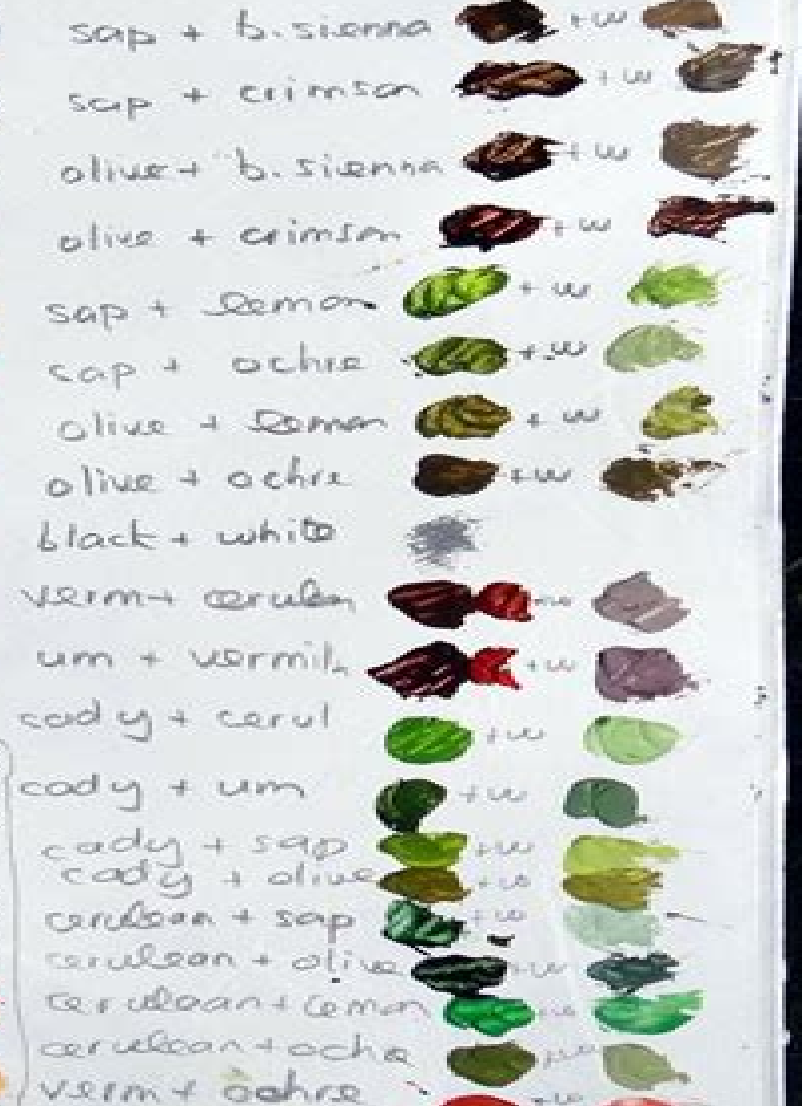 sap + b.sienna +w
sap + crimson +w
olive + b.sienna +w
olive + crimson +w
sap + lemon +w
sap + ochre +w
olive + lemon +w
olive + ochre +w
black + white
verm + cerulen +w
um + vermil. +w
cad y + cerul +w
cad y + um +w
cad y + sap +w
cad y + olive +w
cerulean + sap +w
cerulean + olive +w
cerulean + lemon +w
cerulean + ochre +w
verm + ochre +w